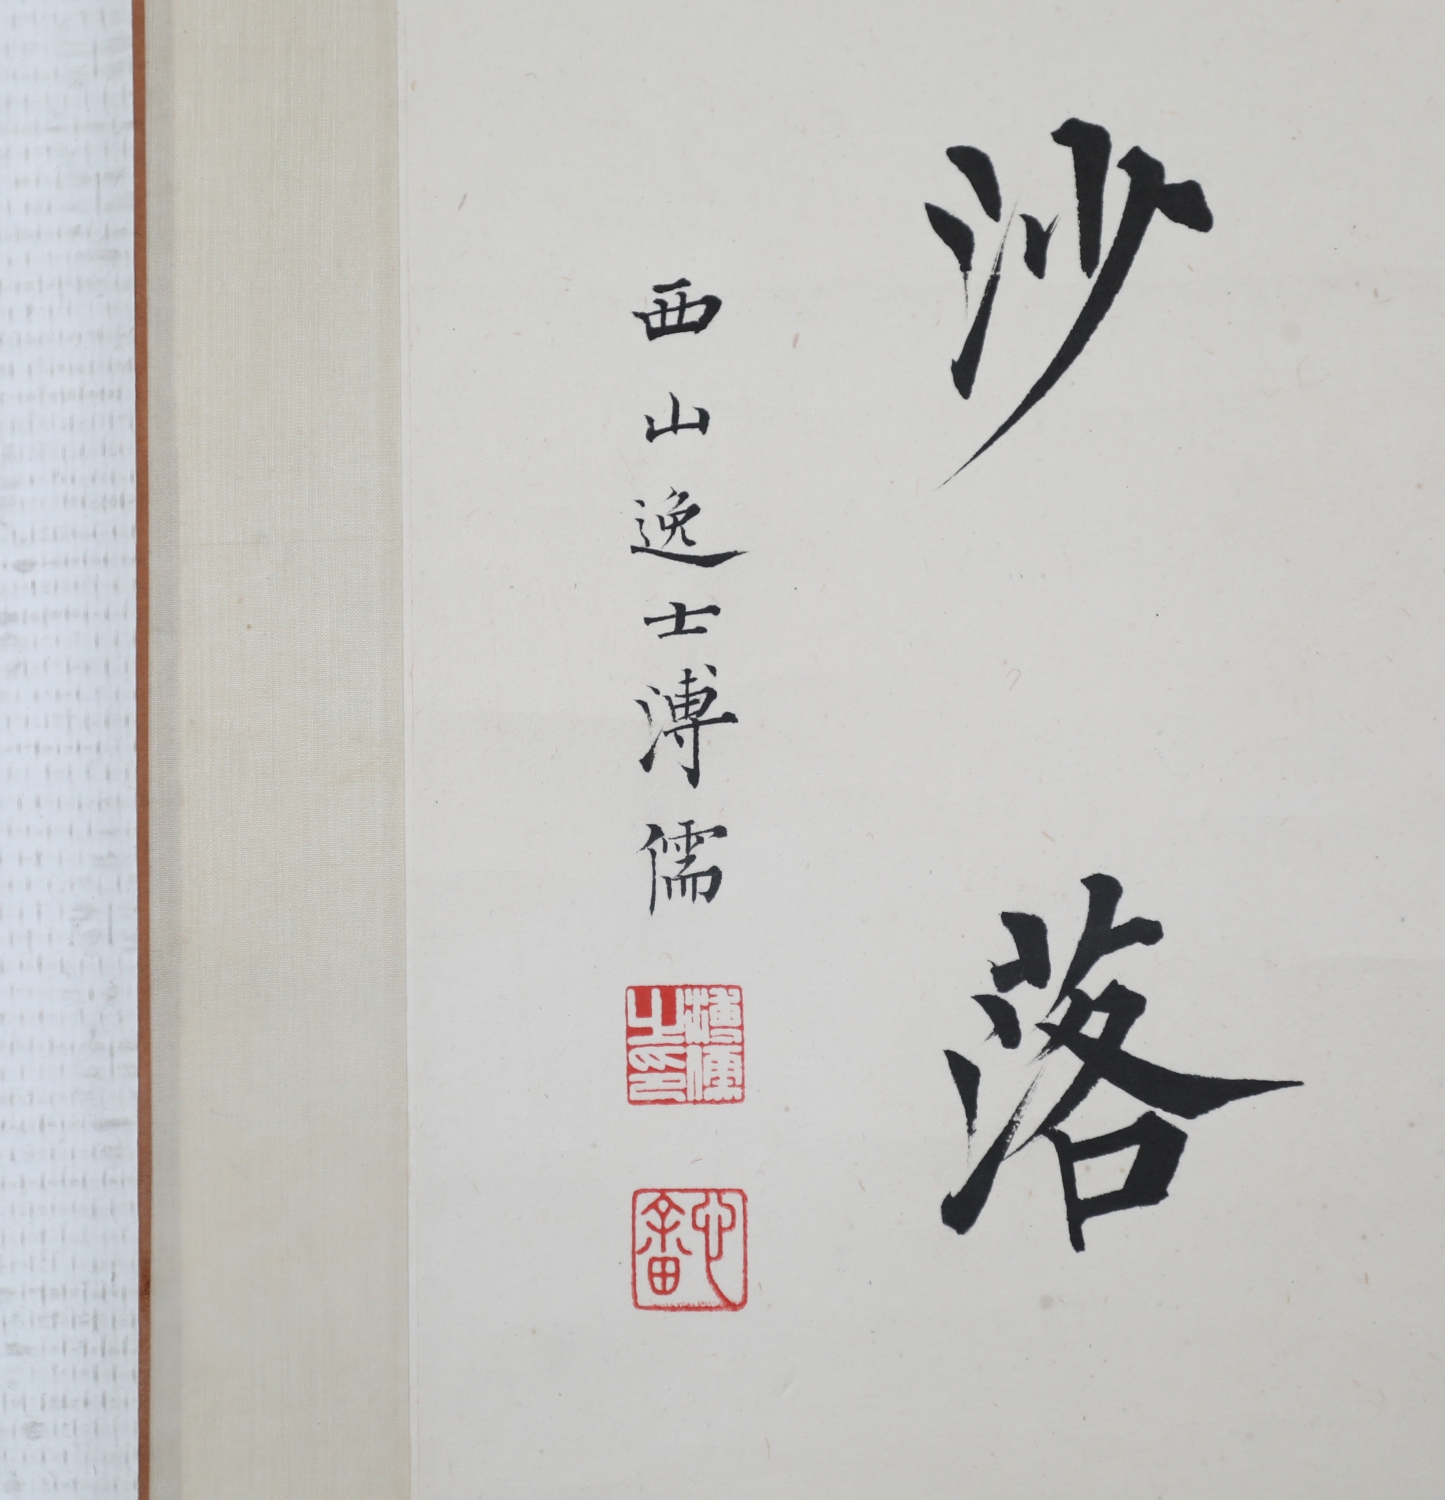 沙落
西山逸士溥儒
溥儒之印
心畬